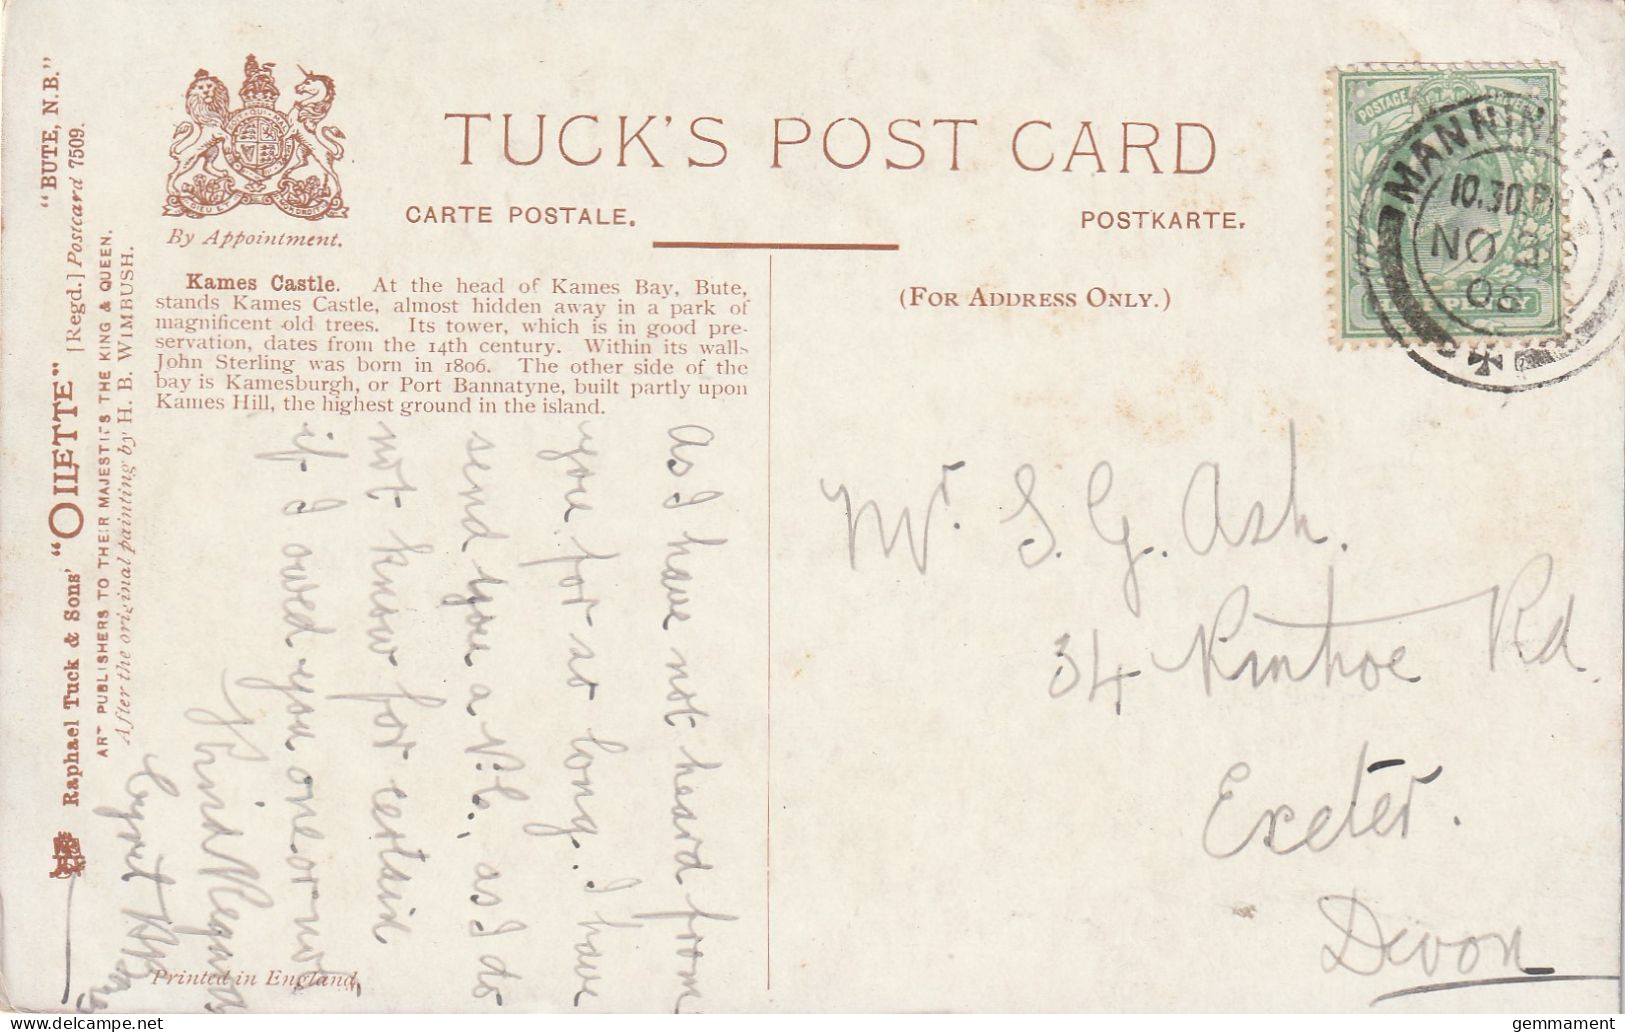 "BUTE, N.B."
Raphael Tuck & Sons' "OILETTE" [Regd.] Postcard 7509.
ART PUBLISHERS TO THEIR MAJESTIES THE KING & QUEEN.
After the original painting by H. B. WIMBUSH.
By Appointment.
TUCK'S POST CARD
CARTE POSTALE.
POSTKARTE.
Kames Castle. At the head of Kames Bay, Bute,
stands Kames Castle, almost hidden away in a park of
magnificent old trees. Its tower, which is in good pre-
servation, dates from the 14th century. Within its walls
John Sterling was born in 1806. The other side of the
bay is Kamesburgh, or Port Bannatyne, built partly upon
Kames Hill, the highest ground in the island.
As I have not heard from
you for so long. I have
send you a P.C., as I do
not know for certain
if I owed you one or not
Kind Regards
(FOR ADDRESS ONLY.)
POSTAGE
MANNINGTREE
10.30 PM
NO
08
Mr. S. G. Ash.
34 Rd.
Exeter.
Devon
Printed in England.
gemmament